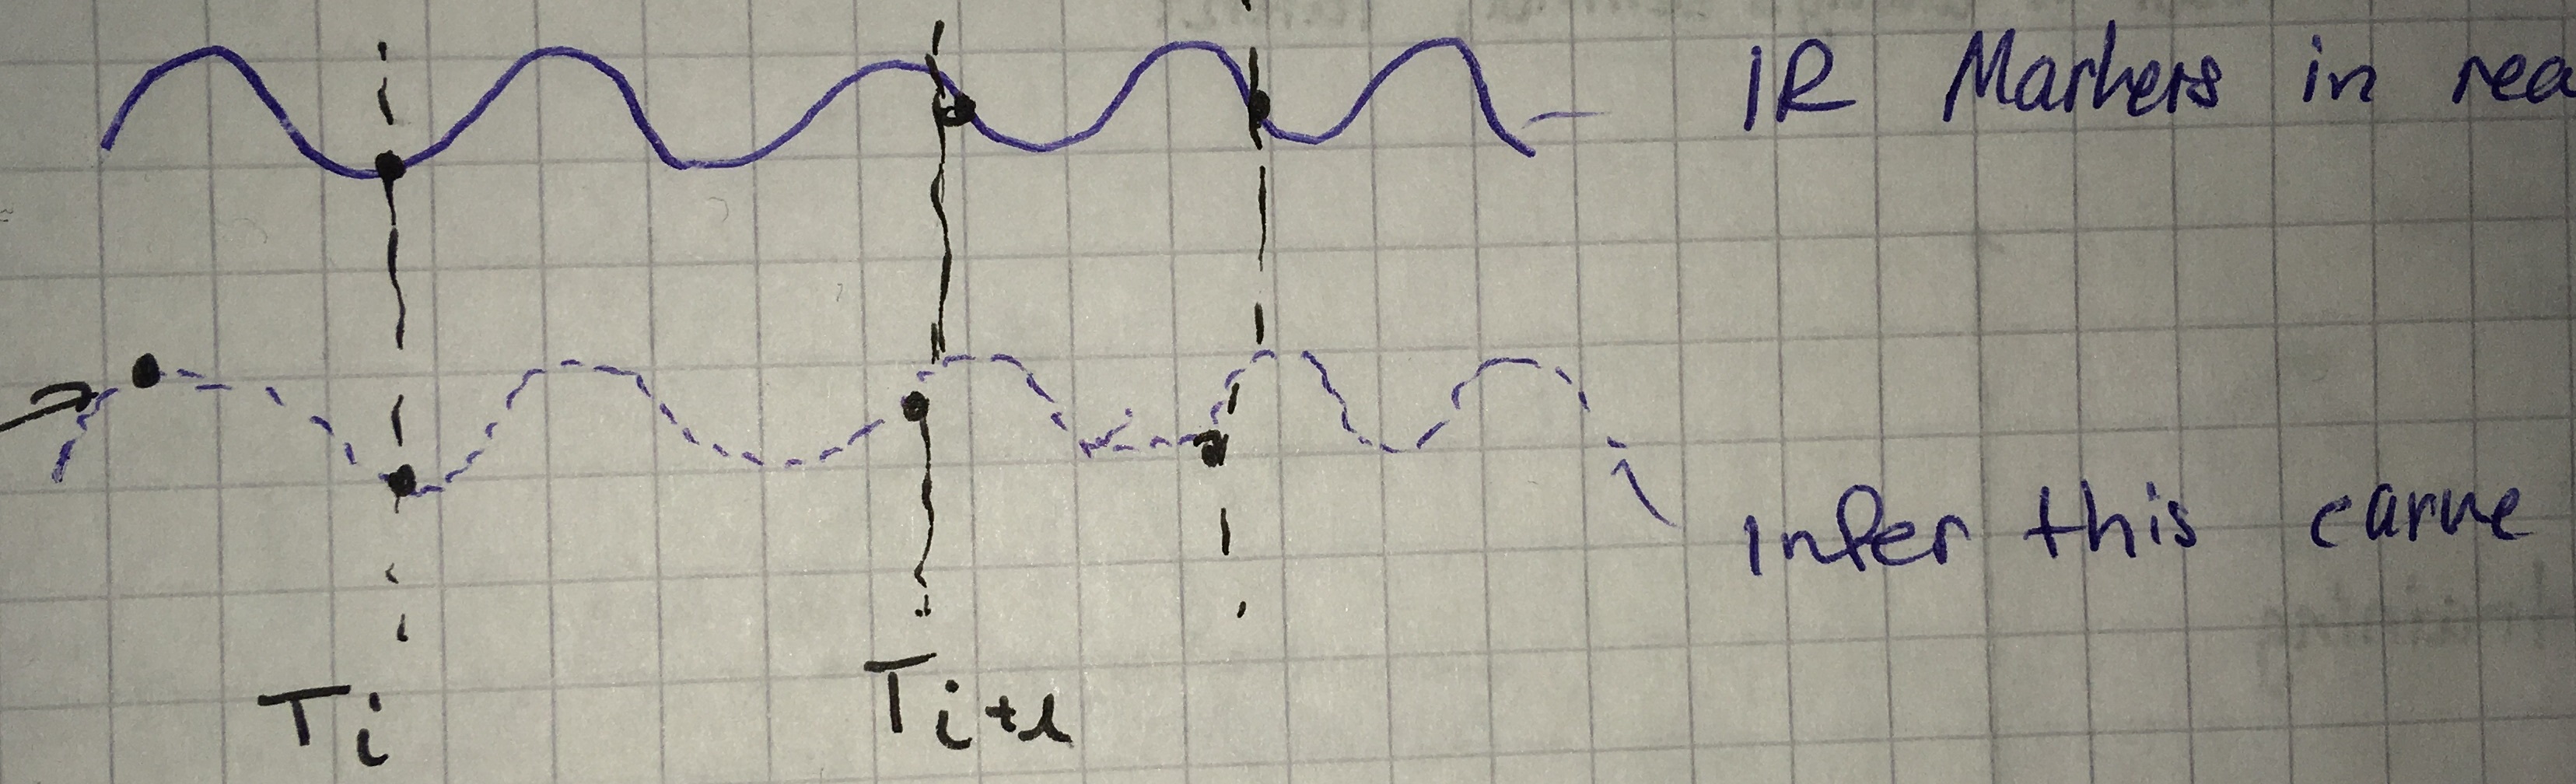 IR Markers in rea
Infer this curve
Ti Ti+1